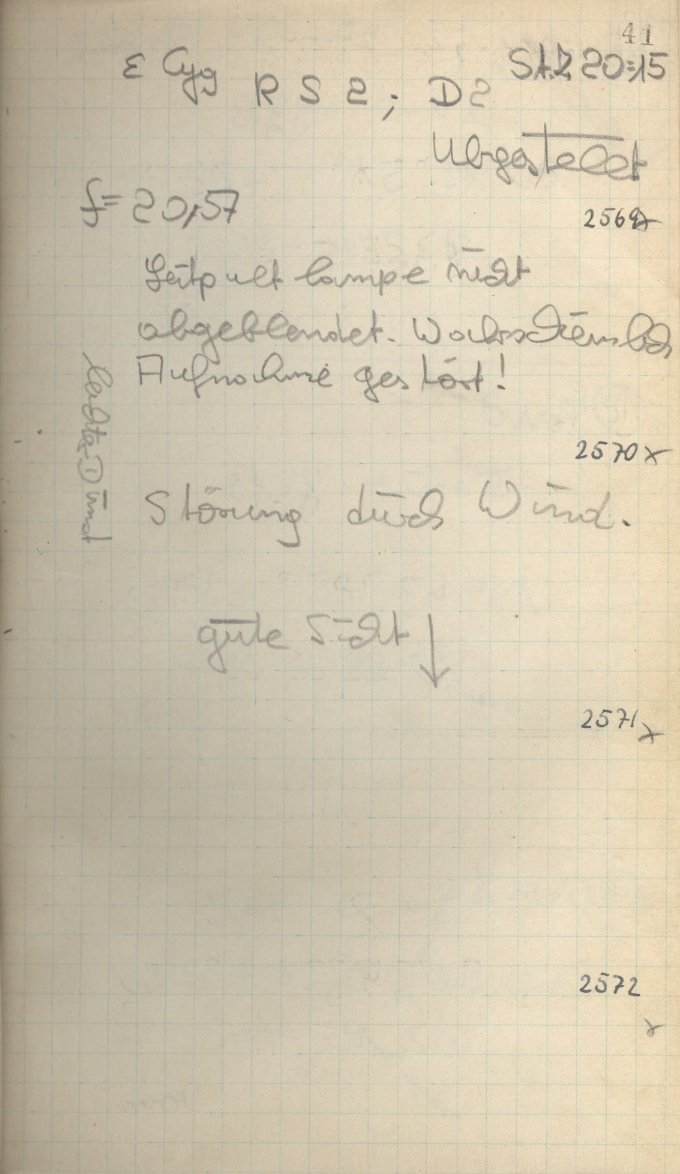 41
ε Cyg R S 2 ; D 2 StZ 20:15
Uhrgestellt
f= 20,57
2569 x
Leitpultlampe nicht
abgeblendet.
Aufnahme gestört!
leichter Dunst
2570 x
Störung durch Wind.
gute Sicht ↓
2571 x
2572
x